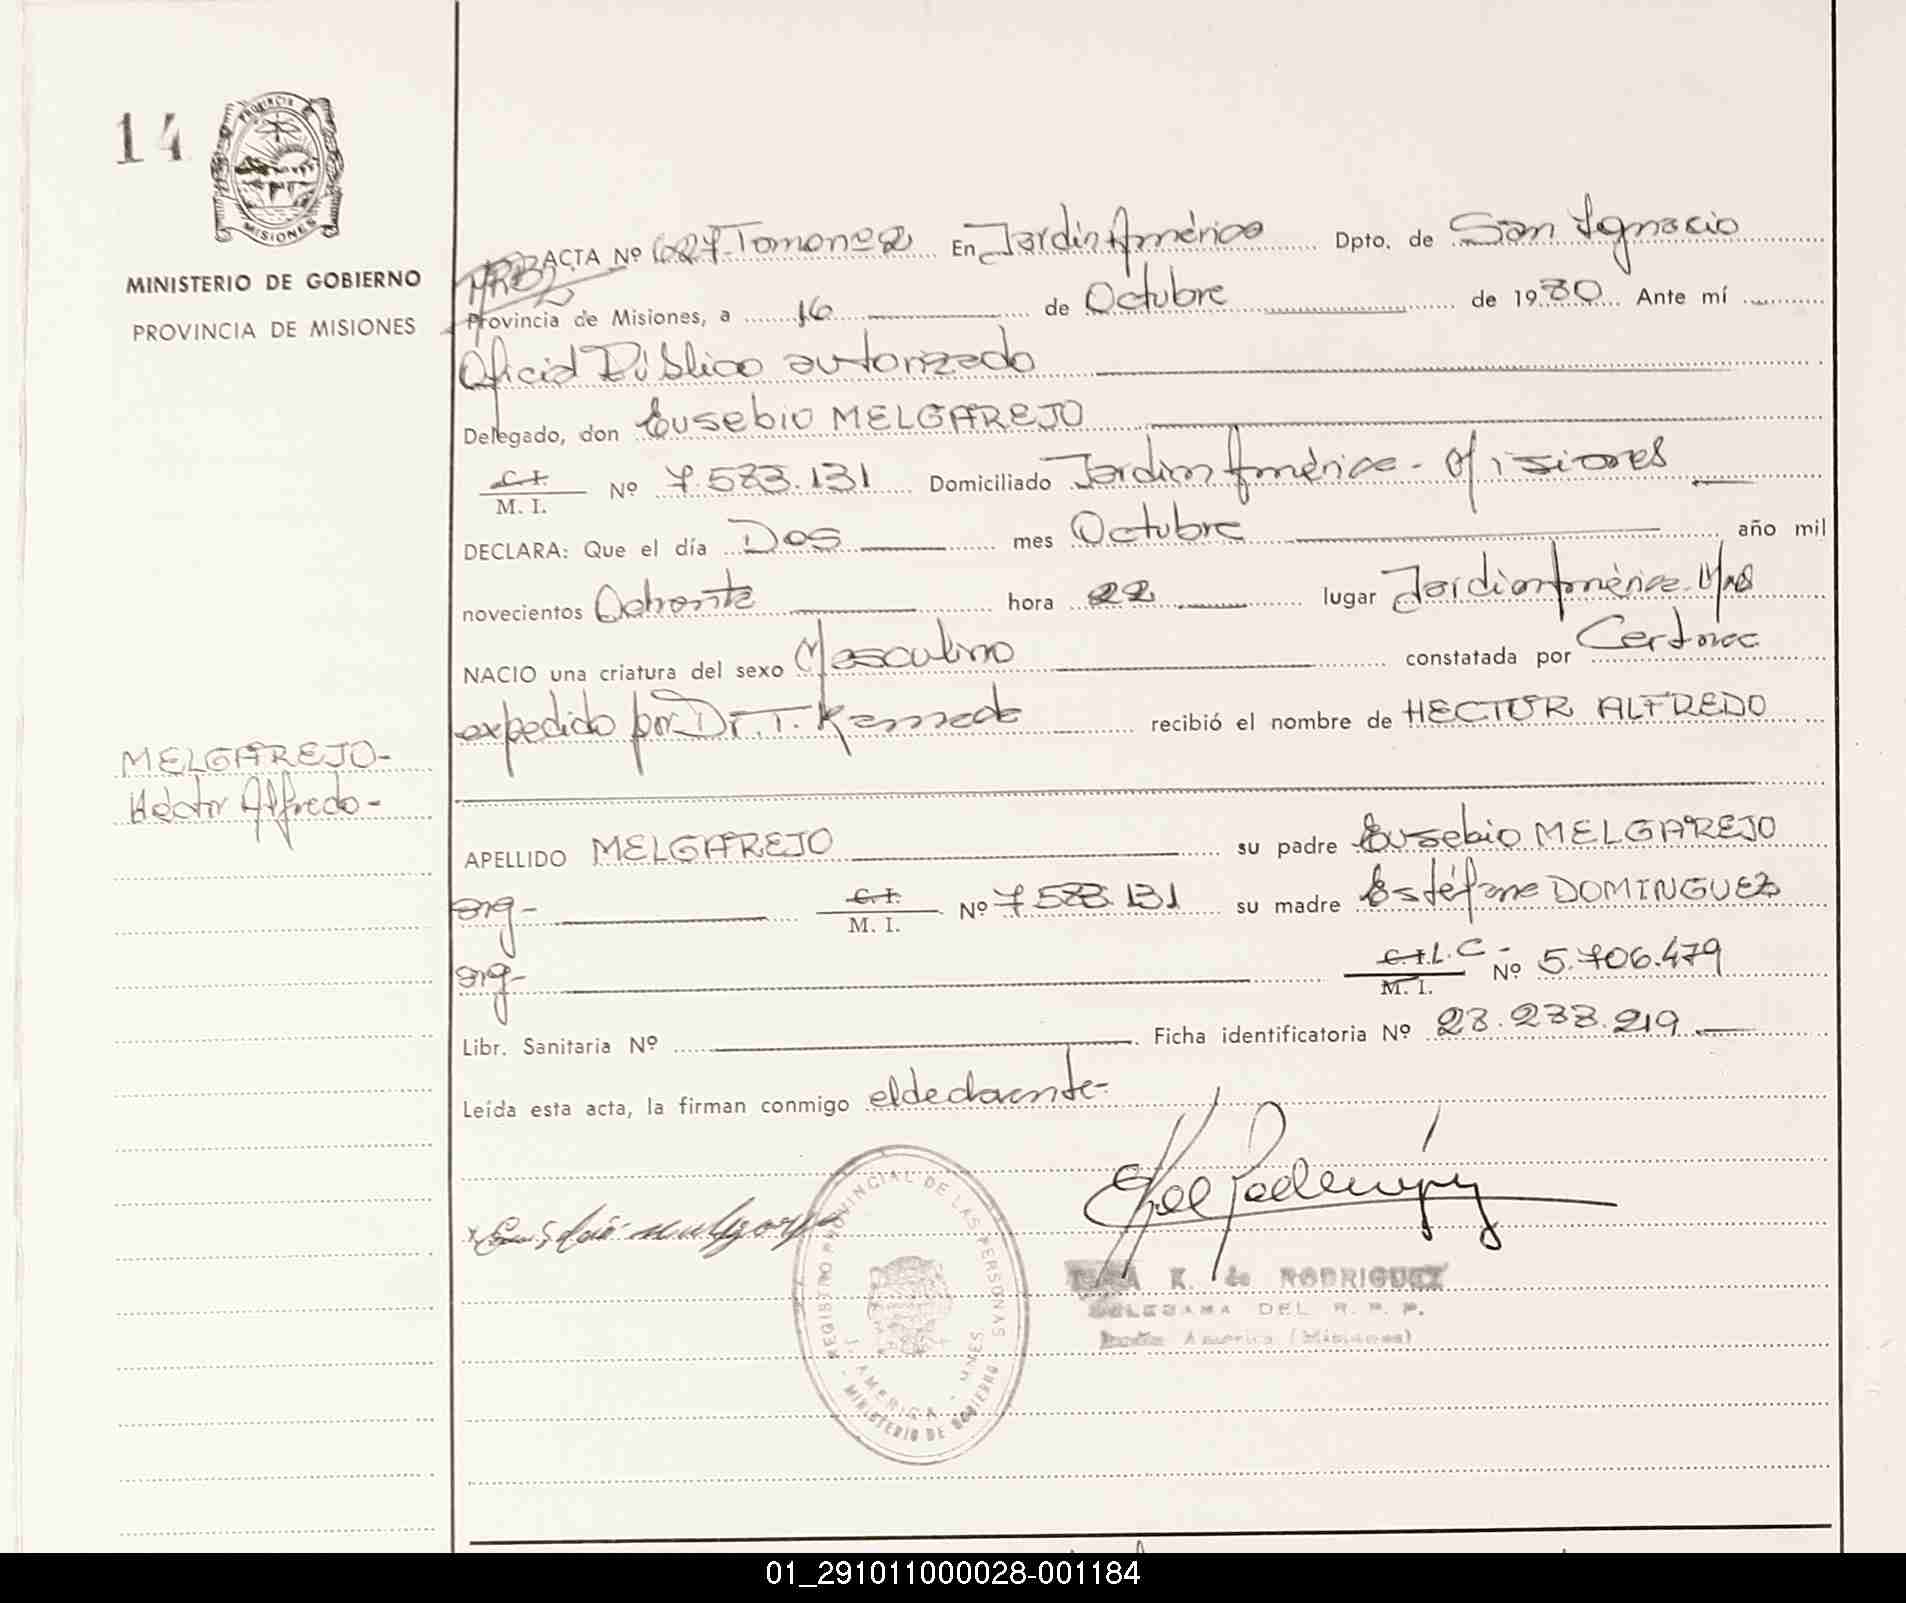 14
PROVINCIA
MISIONES
MINISTERIO DE GOBIERNO
PROVINCIA DE MISIONES
ACTA Nº 627 Tomo nº 2 En Jardín América Dpto. de San Ignacio
Provincia de Misiones, a 16 de Octubre de 1980 Ante mí
Oficial Público autorizado
Delegado, don Eusebio MELGAREJO
C.I.
M. I. Nº 7.583.131 Domiciliado Jardín América - Misiones
DECLARA: Que el día Dos mes Octubre año mil
novecientos Ochenta hora 22 lugar Jardín América. Mnes
NACIO una criatura del sexo Masculino constatada por Certmec
expedido por Dr. T. recibió el nombre de HECTOR ALFREDO
MELGAREJO-
Hector Alfredo-
APELLIDO MELGAREJO su padre Eusebio MELGAREJO
arg- C.I.
M. I. Nº 7.583.131 su madre Estéfana DOMINGUEZ
arg- C.I. L.C-
M. I. Nº 5.706.479
Libr. Sanitaria Nº Ficha identificatoria Nº 28.238.219
Leída esta acta, la firman conmigo el declarante-
REGISTRO PROVINCIAL DE LAS PERSONAS
J. AMERICA - MNES
- MINISTERIO DE GOBIERNO
K. de RODRIGUEZ
DEL R. P. P.
América (Misiones)
01_291011000028-001184